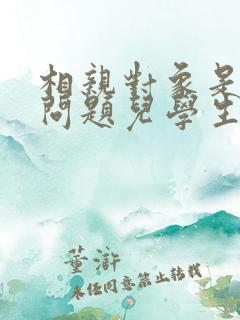 相親對象是
問題兒學生
董滸
未經同意禁止轉載